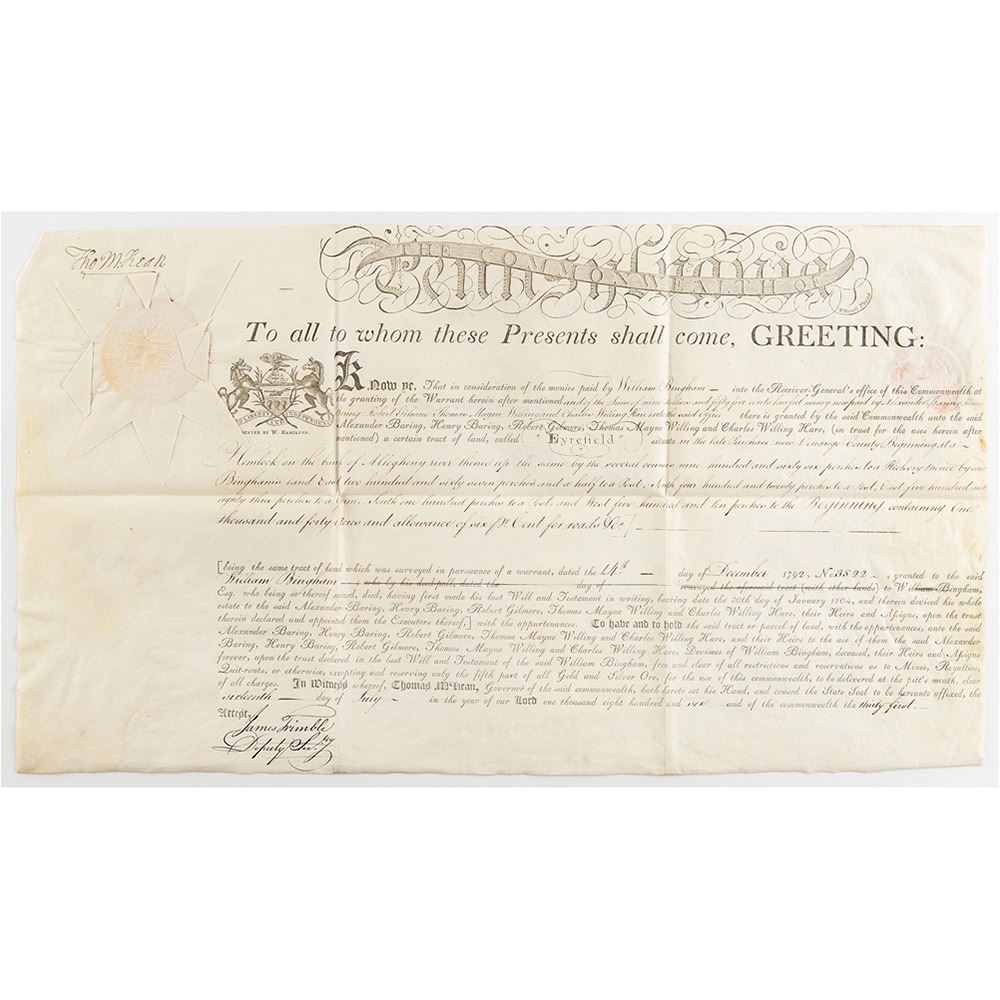 Tho M:Kean
THE COMMONWEALTH OF
Pennsylvania
To all to whom these Presents shall come, GREETING:
Know ye, That in consideration of the monies paid by William Bingham — into the Receiver-General's office of this Commonwealth at
the granting of the Warrant herein after mentioned and the Sum of nine dollars and fifty five cents lawful money now paid by Alexander Baring, Henry
Baring Robert Gilmore Thomas Mayne Willing and Charles Willing Hare into the said Office there is granted by the said Commonwealth unto the said
Alexander Baring, Henry Baring, Robert Gilmore, Thomas Mayne Willing and Charles Willing Hare, (in trust for the uses herein after
mentioned) a certain tract of land, called "Eyrefield" situate in the late Purchase now Venango County Beginning at a —
VIRTUE LIBERTY AND INDEPENDENCE
W. HAMILTON.
Hemlock on the bank of Allegheny river thence up the same by the several courses nine hundred and sixty six perches to a Hickory thence by said
Bingham's land East two hundred and sixty seven perches and a half to a Post, North four hundred and twenty perches to a Post, East five hundred and
eighty three perches to a Gum, South one hundred perches to a Post and West five hundred and ten perches to the Beginning containing One
thousand and forty acres and allowance of six pr. Cent for roads &c.]
[being the same tract of land which was surveyed in pursuance of a warrant, dated the 14th — day of December 1792, No. 3522 -, granted to the said
William Bingham —; who by his deed-poll, dated the day of conveyed the aforesaid tract (with other lands) to William Bingham,
Esq. who being so thereof seized, died, having first made his last Will and Testament in writing, bearing date the 30th day of January 1804, and therein devised his whole
estate to the said Alexander Baring, Henry Baring, Robert Gilmore, Thomas Mayne Willing and Charles Willing Hare, their Heirs and Assigns, upon the trust
therein declared and appointed them the Executors thereof,] with the appurtenances. To have and to hold the said tract or parcel of land, with the appurtenances, unto the said
Alexander Baring, Henry Baring, Robert Gilmore, Thomas Mayne Willing and Charles Willing Hare, and their Heirs to the use of them the said Alexander
Baring, Henry Baring, Robert Gilmore, Thomas Mayne Willing and Charles Willing Hare, Devisees of William Bingham, deceased, their Heirs and Assigns
forever, upon the trust declared in the last Will and Testament of the said William Bingham, free and clear of all restrictions and reservations as to Mines, Royalties,
Quit-rents, or otherwise, excepting and reserving only the fifth part of all Gold and Silver Ore, for the use of this commonwealth, to be delivered at the pitt's mouth, clear
of all charges. In Witness whereof, Thomas M'Kean, Governor of the said commonwealth, hath hereto set his Hand, and caused the State Seal to be hereunto affixed, the
sixteenth — day of July - in the year of our Lord one thousand eight hundred and six — and of the commonwealth the thirty first.—
Attest,
James Trimble
Deputy Secry